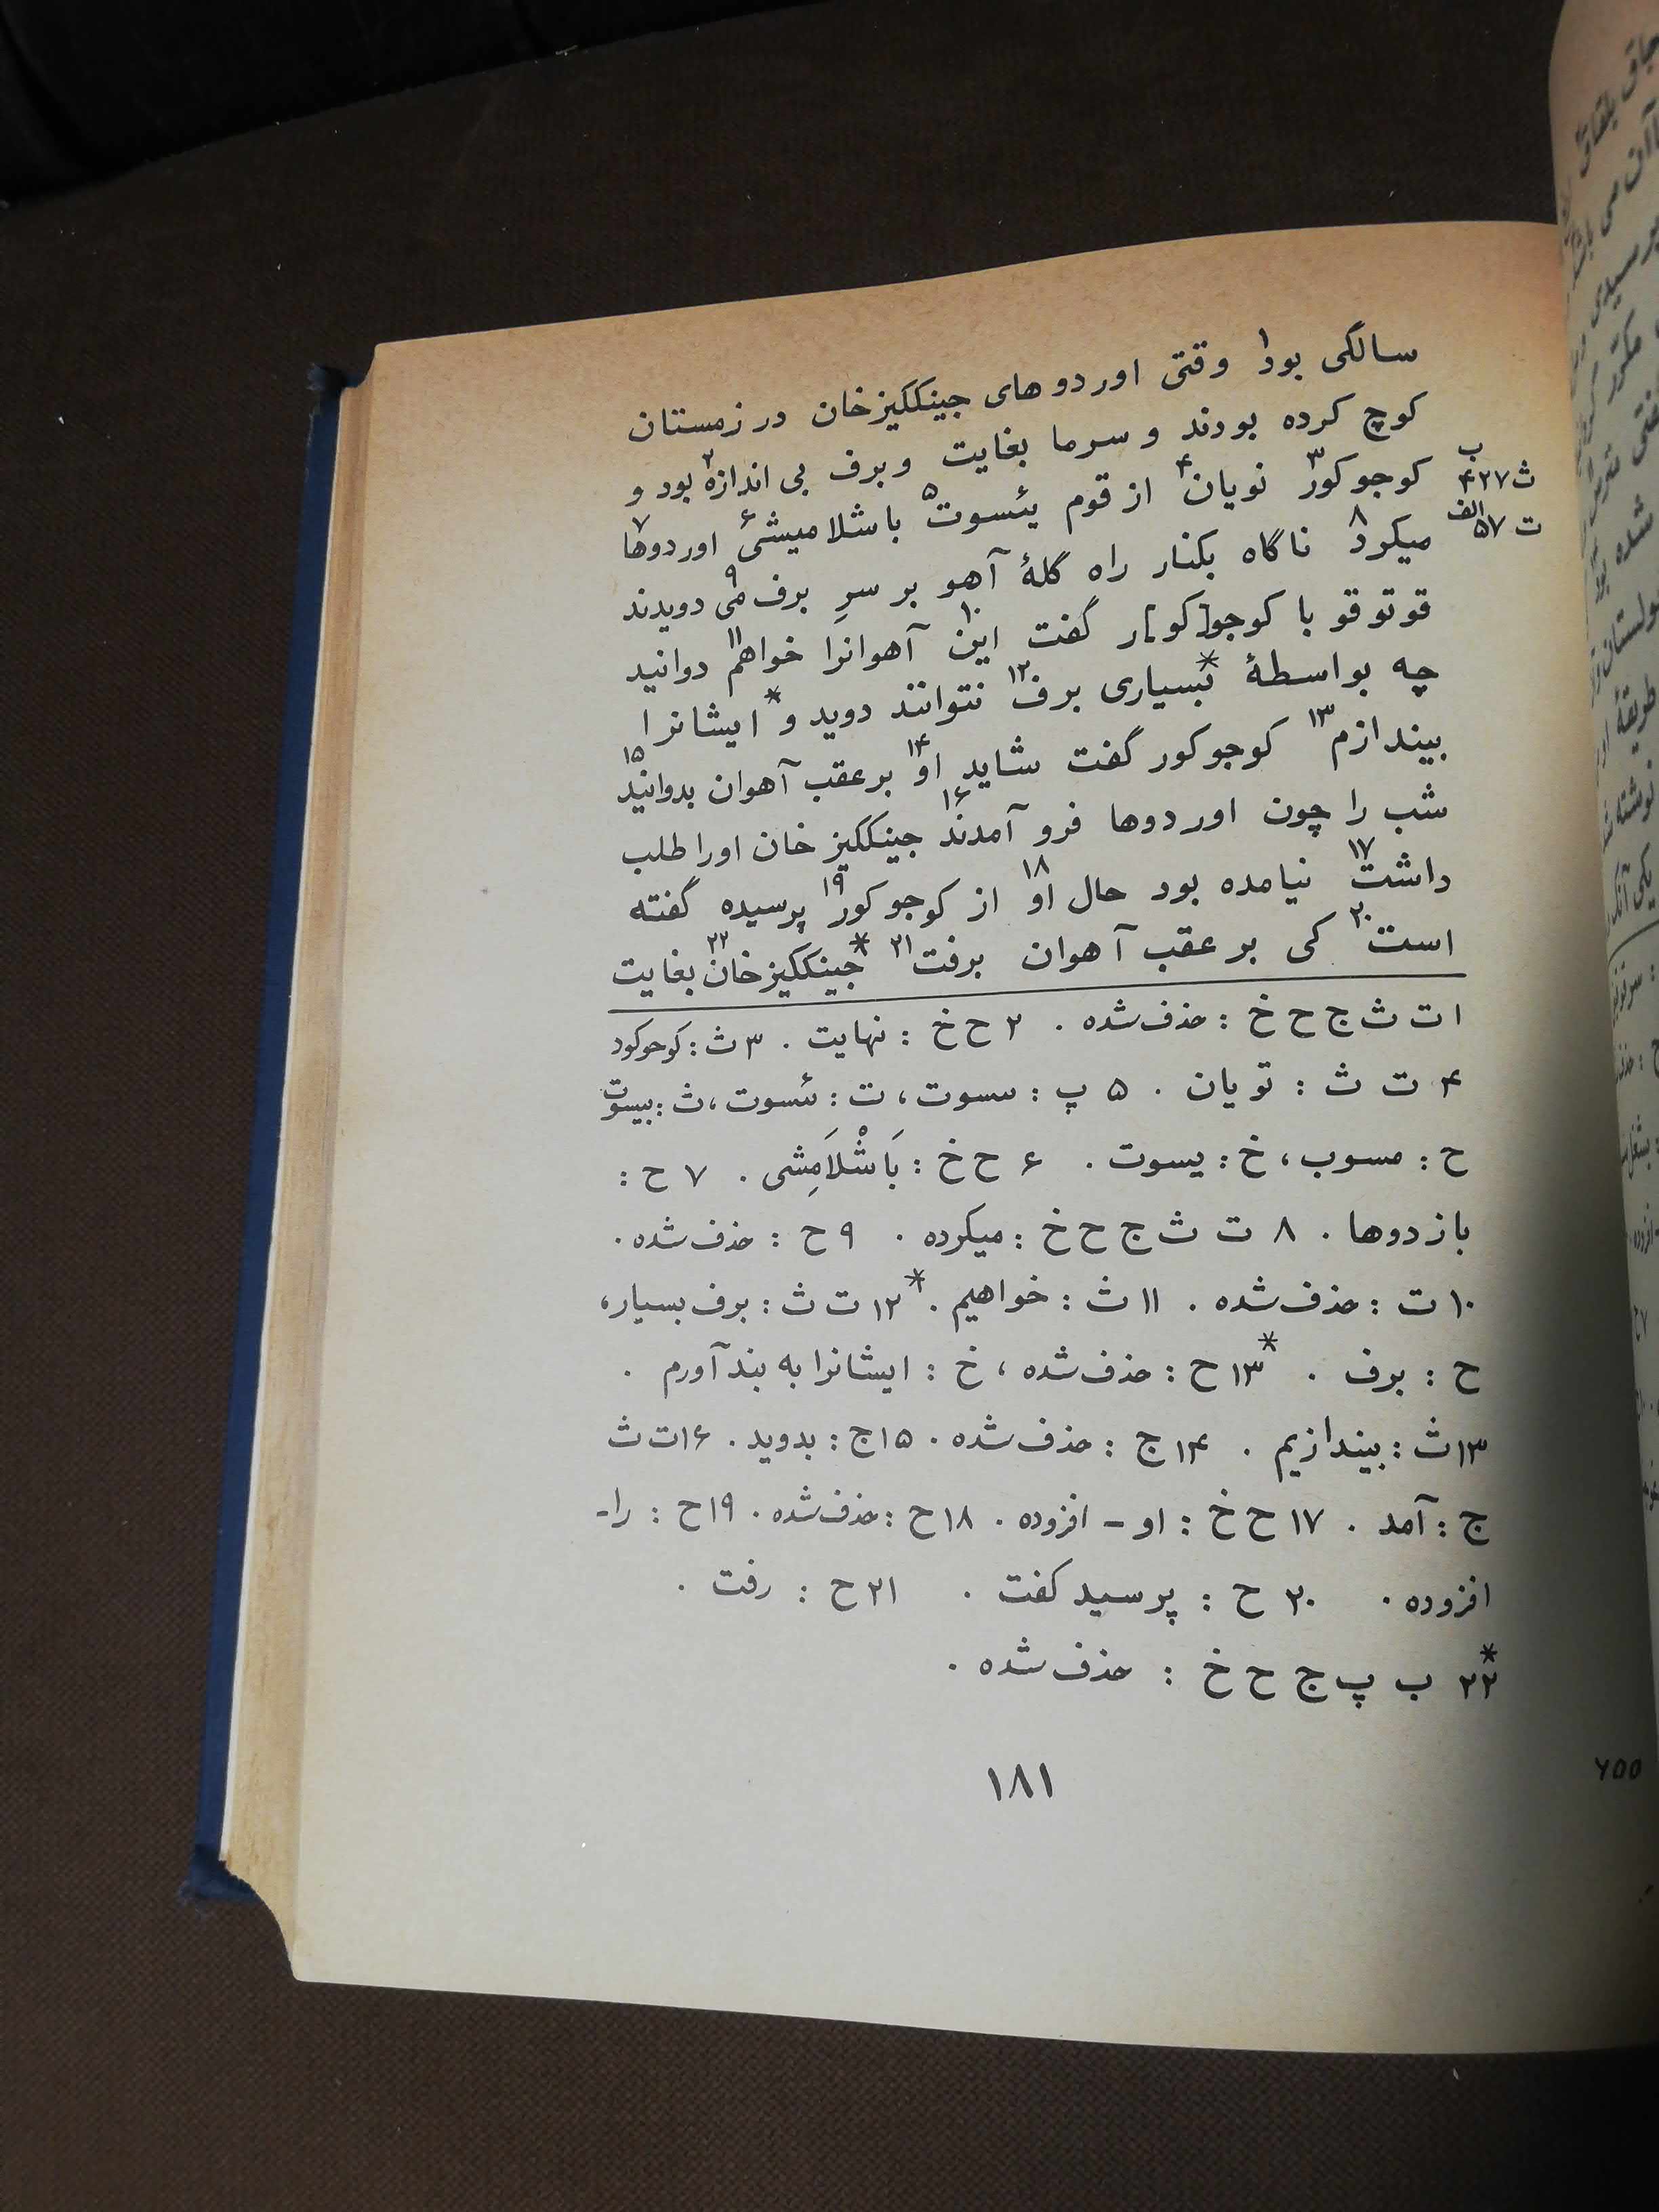 سالگی بود۱ وقتی اوردوهای جینککیزخان در زمستان
کوچ کرده بودند و سرما بغایت و برف بی اندازه۲ بود و
ب
ث۴۲۷ کوجوکور۳ نویان۴ از قوم یئسوت۵ باشلامیشی۶ اوردوها۷
الف
ت۵۷ میکرد۸ ناگاه بکنار راه گلهٔ آهو بر سرِ برف می۹ دویدند
قوتوقو با کوجو[کو]ر گفت این۱۰ آهوانرا خواهم۱۱ دوانید
چه بواسطهٔ *بسیاری برف۱۲ نتوانند دوید و* ایشانرا
بیندازم۱۳ کوجوکور گفت شاید او۱۴ بر عقب آهوان بدوانید۱۵
شب را چون اوردوها فرو آمدند۱۶ جینککیز خان اورا طلب
داشت۱۷ نیامده بود حال او۱۸ از کوجوکور۱۹ پرسیده گفته
است۲۰ کی بر عقب آهوان برفت۲۱ *جینککیزخان۲۲ بغایت
۱ ت ث ج ح خ : حذف شده . ۲ ح خ : نهایت . ۳ ث : کوحوکود
۴ ت ث : تویان . ۵ پ : سسوت ، ت : ئسوت ، ث : بیسوت
ح : مسوب ، خ : یسوت . ۶ ح خ : بَاشْلَامِشی . ۷ ح :
بازدوها . ۸ ت ث ج ح خ : میکرده . ۹ ح : حذف شده .
۱۰ ت : حذف شده . ۱۱ ث : خواهیم . *۱۲ ت ث : برف بسیار ،
ح : برف . *۱۳ ح : حذف شده ، خ : ایشانرا به بند آورم .
۱۳ ث : بیندازیم . ۱۴ ج : حذف شده . ۱۵ ج : بدوید . ۱۶ ت ث
ج : آمد . ۱۷ ح خ : او - افزوده . ۱۸ ح : حذف شده . ۱۹ ح : را -
افزوده . ۲۰ ح : پرسید کفت . ۲۱ ح : رفت .
*۲۲ ب پ ج ح خ : حذف شده .
۱۸۱